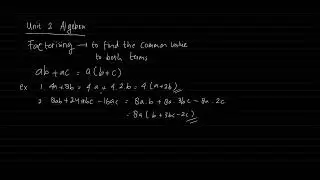 Unit 2 Algebra
Factorising → to find the common value
to both terms
ab + ac = a(b+c)
ex 1. 4a+8b = 4.a + 4.2.b = 4(a+2b)
2. 8ab + 24abc - 16ac = 8a.b + 8a.3bc - 8a.2c
= 8a(b+3bc-2c)